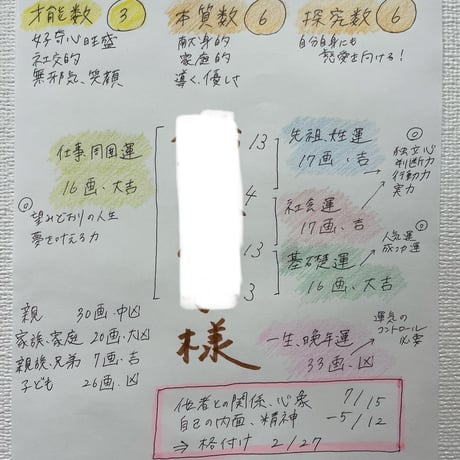 才能数 3
好奇心旺盛
社交的
無邪気、笑顔
本質数 6
献身的
家庭的
導く、優しさ
探究数 6
自分自身にも
慈愛を向ける!
仕事、周囲運
16画・大吉
◎
望みどおりの人生
夢を叶える力
13
4
13
3
様
先祖、姓運
17画・吉
社会運
17画・吉
◎
独立心
判断力
行動力
実力
基礎運
16画・大吉
◎
人気運
成功運
一生、晩年運
33画・凶
運気の
コントロール
必要
親 30画・中凶
家族、家庭 20画・大凶
親族、兄弟 7画・吉
子ども 26画・凶
他者との関係、心象 7/15
自己の内面、精神 -5/12
⇒ 格付け 2/27